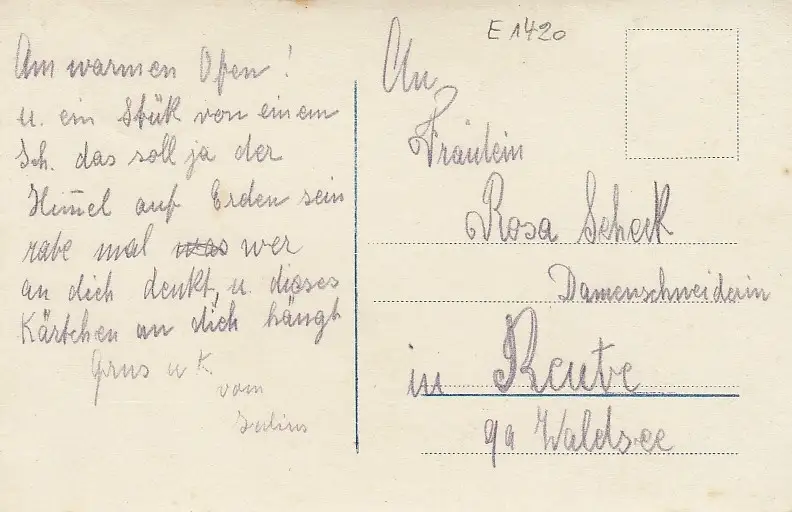 E 1420
Am warmen Ofen!
u. ein Stük von einem
Sch. das soll ja der
Him̅el auf Erden sein
rate mal was wer
an dich denkt, u. dieses
Kärtchen an dich hängt
Grus u K.
vom
An
Fräulein
Rosa Scheck
Damenschneiderin
in Reute
Waldsee